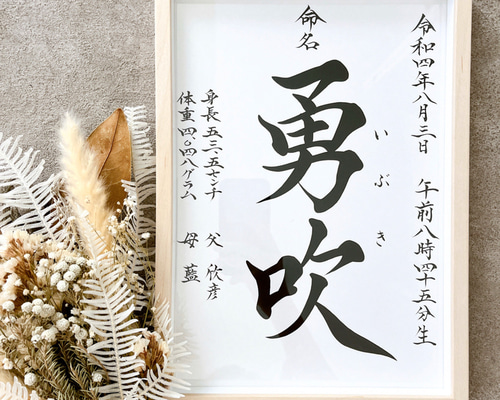 令和四年八月三日 午前八時四十五分生
命名
勇吹
いぶき
身長 五三.五センチ
体重 四.〇四八グラム
父 欣彦
母 藍